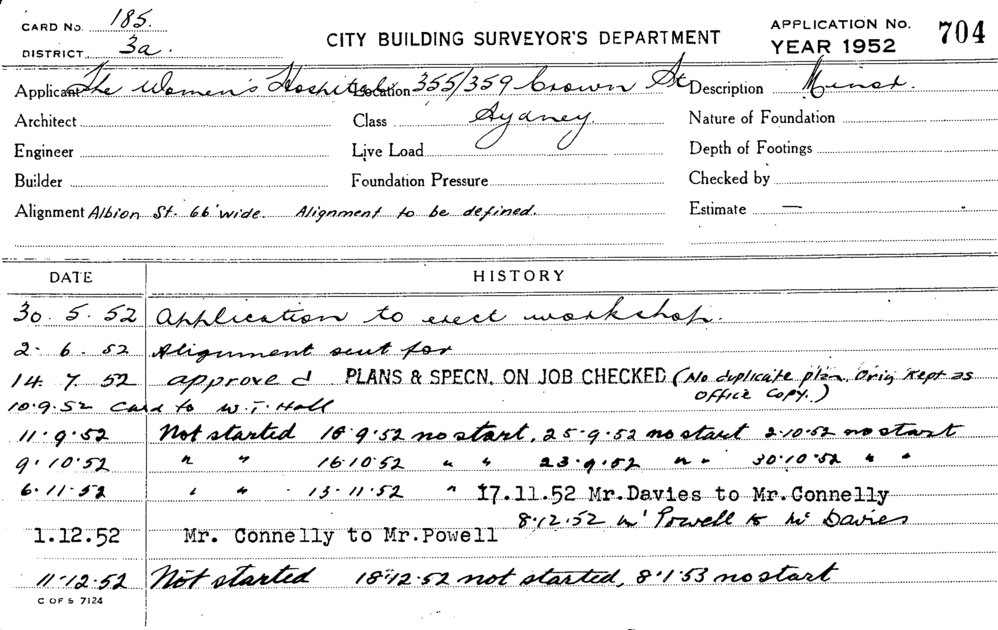 CARD No. 185.
DISTRICT 3a.
CITY BUILDING SURVEYOR'S DEPARTMENT
APPLICATION No. 704
YEAR 1952
Applicant The Women's Hospital Location 355/359 Crown St Description Minor.
Architect Class Sydney. Nature of Foundation
Engineer Live Load Depth of Footings
Builder Foundation Pressure Checked by
Alignment Albion St. 66' wide. Alignment to be defined. Estimate —
DATE HISTORY
30. 5. 52 Application to erect workshop.
2. 6. 52 Alignment sent for
14. 7. 52 approved PLANS & SPECN. ON JOB CHECKED (No duplicate plan. Orig kept as
office copy.)
10.9.52 Card to W. T. Hall
11.9.52 Not started 18.9.52 no start, 25-9.52 no start 2.10.52 no start
9.10.52 " " 16.10.52 " " 23.9.52 " " 30.10.52 " "
6.11.52 " " 13.11.52 " 17.11.52 Mr.Davies to Mr.Connelly
8.12.52 Mr Powell to Mr Davies
1.12.52 Mr. Connelly to Mr.Powell
11.12.52 Not started 18.12.52 not started, 8.1.53 no start
C OF S 7124